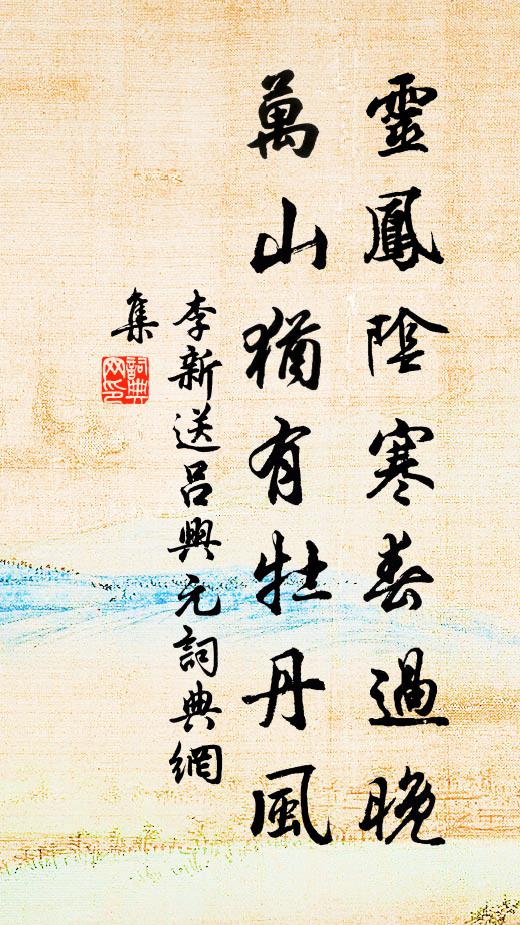 靈鳳陰寒春過晚
萬山猶有牡丹風
李新送呂興元詞典網
集
詞典
網印